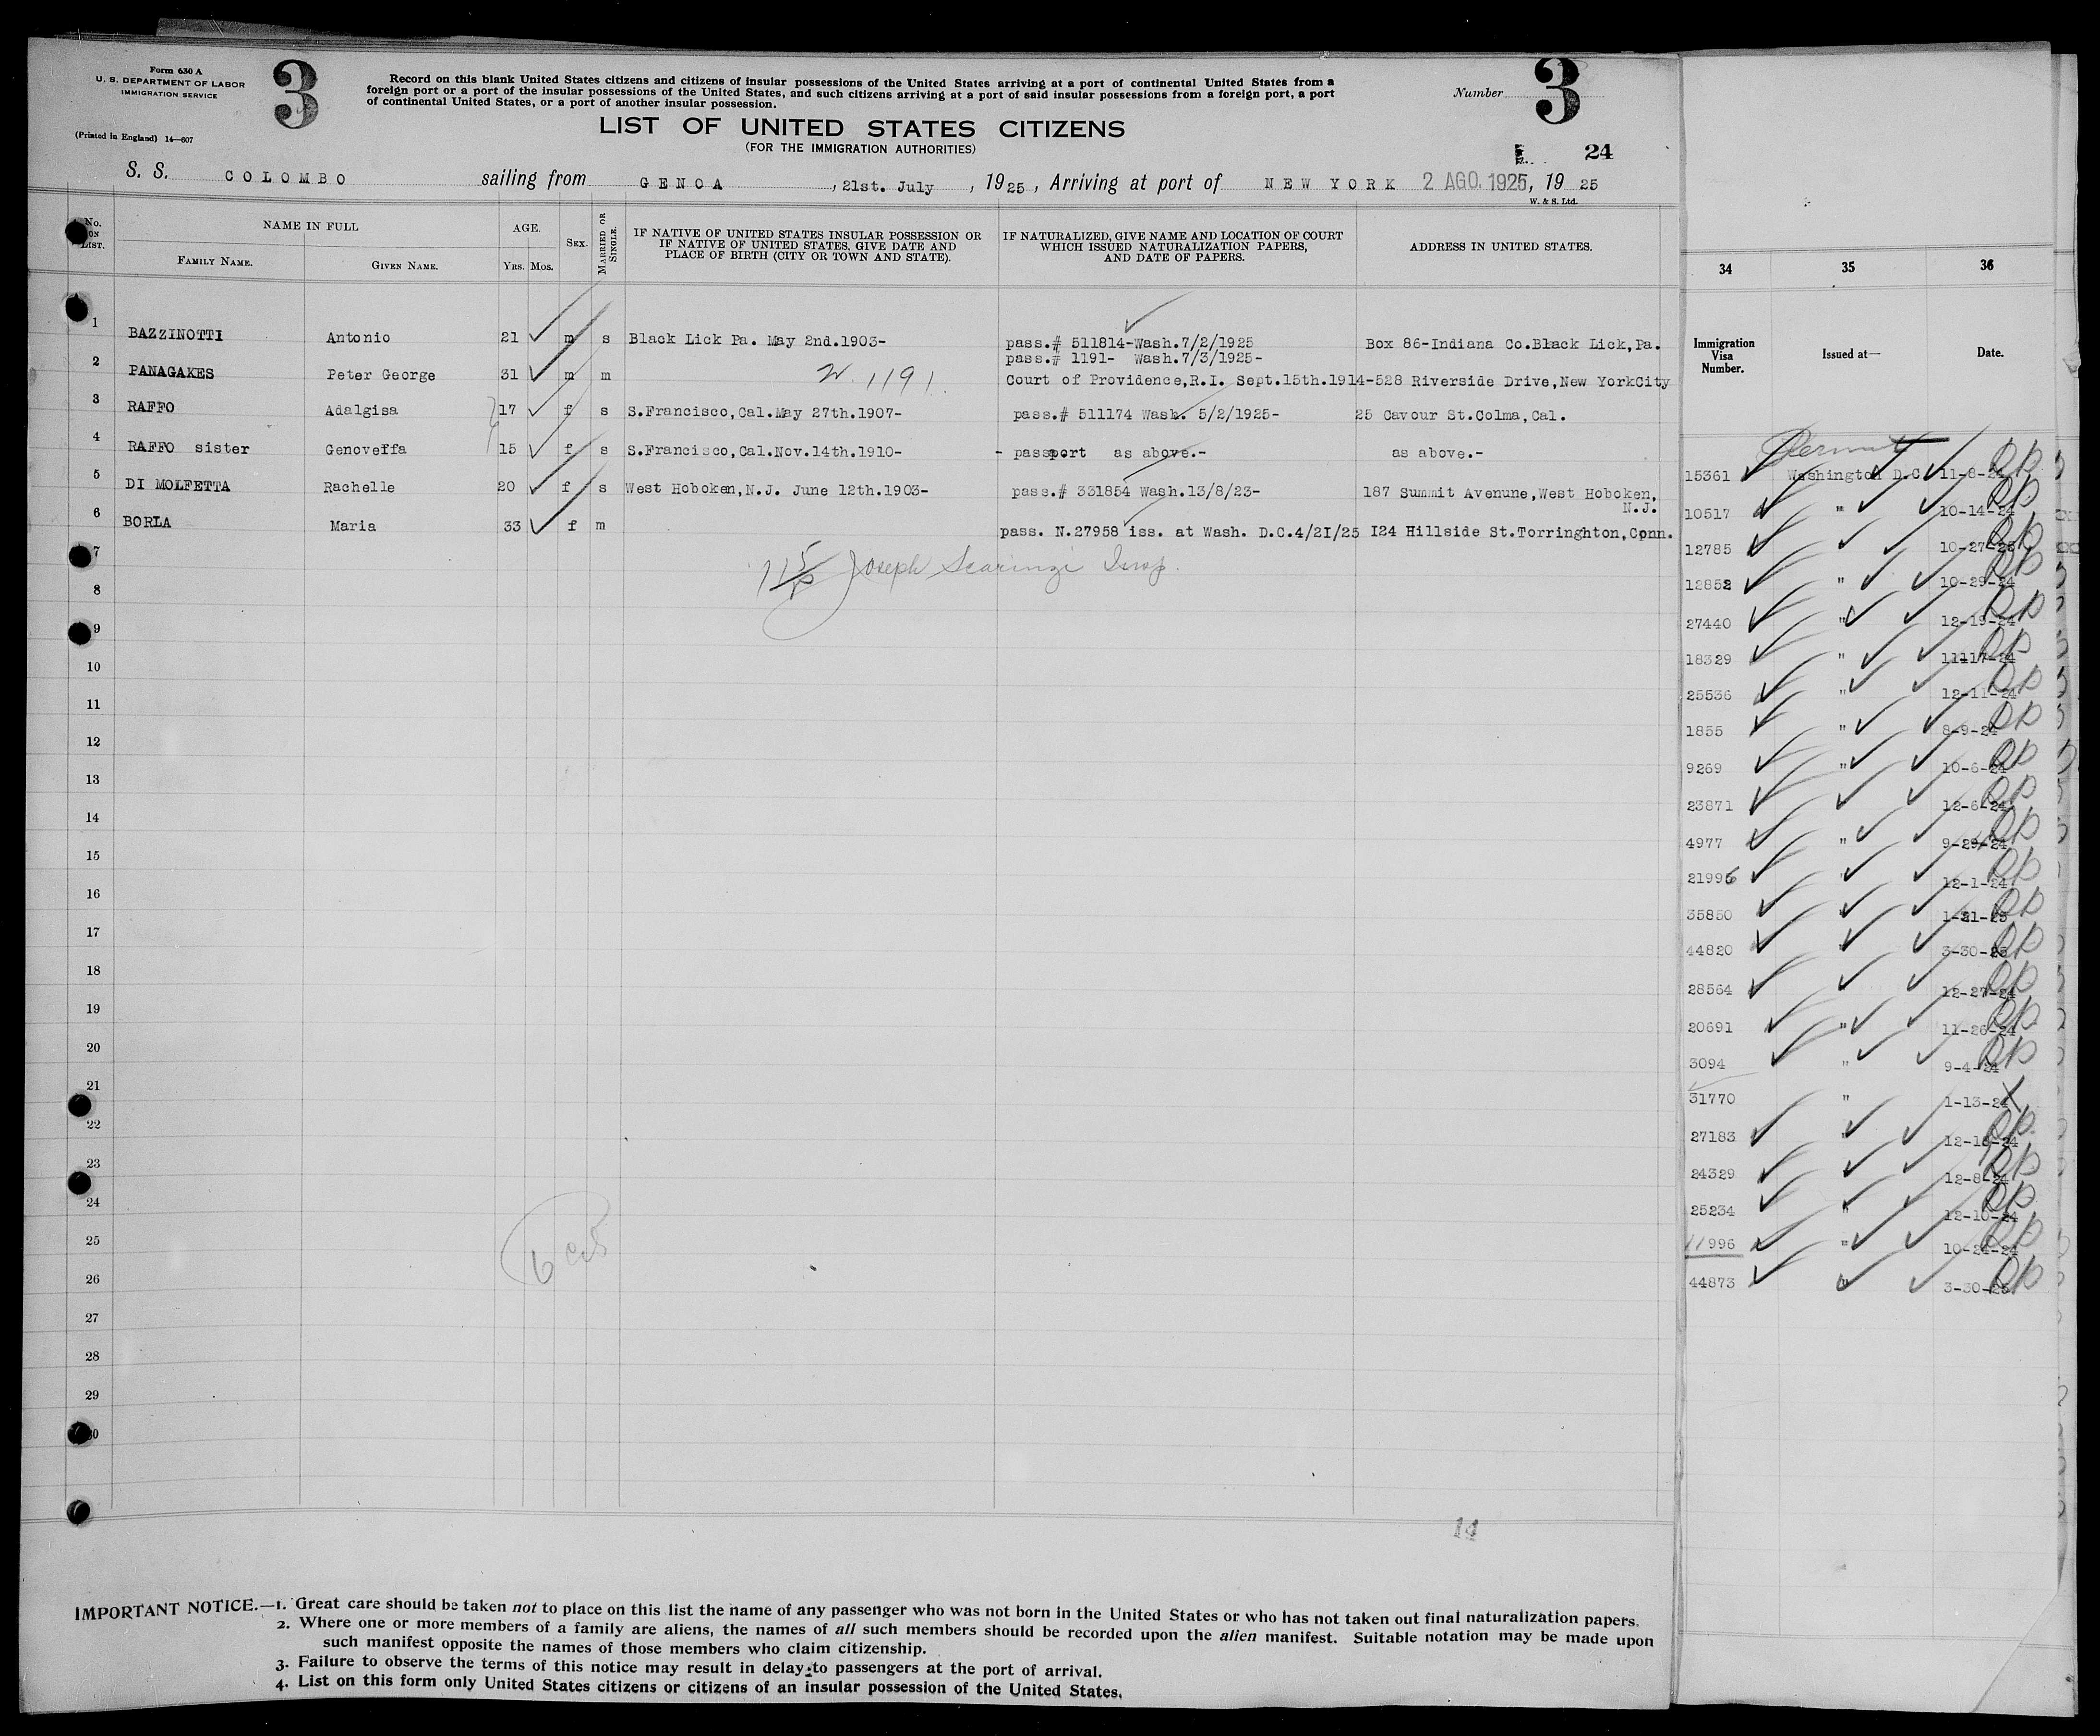 Form 630 A
U. S. DEPARTMENT OF LABOR
IMMIGRATION SERVICE
(Printed in England) 14—607
3
Record on this blank United States citizens and citizens of insular possessions of the United States arriving at a port of continental United States from a
foreign port or a port of the insular possessions of the United States, and such citizens arriving at a port of said insular possessions from a foreign port, a port
of continental United States, or a port of another insular possession.
Number 3
LIST OF UNITED STATES CITIZENS
(FOR THE IMMIGRATION AUTHORITIES)
24
S. S. COLOMBO sailing from GENOA, 21st. July, 1925, Arriving at port of NEW YORK 2 AGO. 1925, 19 25
W. & S. Ltd.
No. ON LIST. NAME IN FULL AGE. SEX. MARRIED OR SINGLE. IF NATIVE OF UNITED STATES INSULAR POSSESSION OR IF NATIVE OF UNITED STATES, GIVE DATE AND PLACE OF BIRTH (CITY OR TOWN AND STATE). IF NATURALIZED, GIVE NAME AND LOCATION OF COURT WHICH ISSUED NATURALIZATION PAPERS, AND DATE OF PAPERS. ADDRESS IN UNITED STATES.
FAMILY NAME. GIVEN NAME. YRS. MOS.
1 BAZZINOTTI Antonio 21 m s Black Lick Pa. May 2nd.1903- pass.# 511814-Wash.7/2/1925 Box 86-Indiana Co.Black Lick,Pa.
pass.# 1191- Wash.7/3/1925-
2 PANAGAKES Peter George 31 m m N. 1191. Court of Providence,R.I. Sept.15th.1914-528 Riverside Drive,New YorkCity
3 RAFFO Adalgisa 17 f s S.Francisco,Cal.May 27th.1907- pass.# 511174 Wash. 5/2/1925- 25 Cavour St.Colma,Cal.
4 RAFFO sister Genoveffa 15 f s S.Francisco,Cal.Nov.14th.1910- - passport as above.- as above.-
5 DI MOLFETTA Rachelle 20 f s West Hoboken,N.J. June 12th.1903- pass.# 331854 Wash.13/8/23- 187 Summit Avenune,West Hoboken,
N.J.
6 BORLA Maria 33 f m pass. N.27958 iss. at Wash. D.C.4/2I/25 I24 Hillside St.Torringhton,Conn.
7
Joseph Scaringi Insp.
8
9
10
11
12
13
14
15
16
17
18
19
20
21
22
23
24
25
6
26
27
28
29
30
14
IMPORTANT NOTICE.—1. Great care should be taken not to place on this list the name of any passenger who was not born in the United States or who has not taken out final naturalization papers.
2. Where one or more members of a family are aliens, the names of all such members should be recorded upon the alien manifest. Suitable notation may be made upon
such manifest opposite the names of those members who claim citizenship.
3. Failure to observe the terms of this notice may result in delay to passengers at the port of arrival.
4. List on this form only United States citizens or citizens of an insular possession of the United States.
34 35 36
Immigration Visa Number. Issued at— Date.
Permit
15361 Washington D.C. 11-8-24
10517 " 10-14-24
12785 10-27-25
12852 " 10-29-24
27440 " 12-19-24
18329 " 11117-24
25536 " 12-11-24
1855 " 8-9-24
9269 " 10-6-24
23871 12-6-24
4977 " 9-29-24
21996 " 12-1-24
35850 1-21-25
44820 " 3-30-25
28564 12-27-24
20691 " 11-26-24
3094 " 9-4-24
31770 " 1-13-24
27183 12-18-24
24329 12-8-24
25234 " 12-10-24
11996 " 10-24-24
44873 " 3-30-25